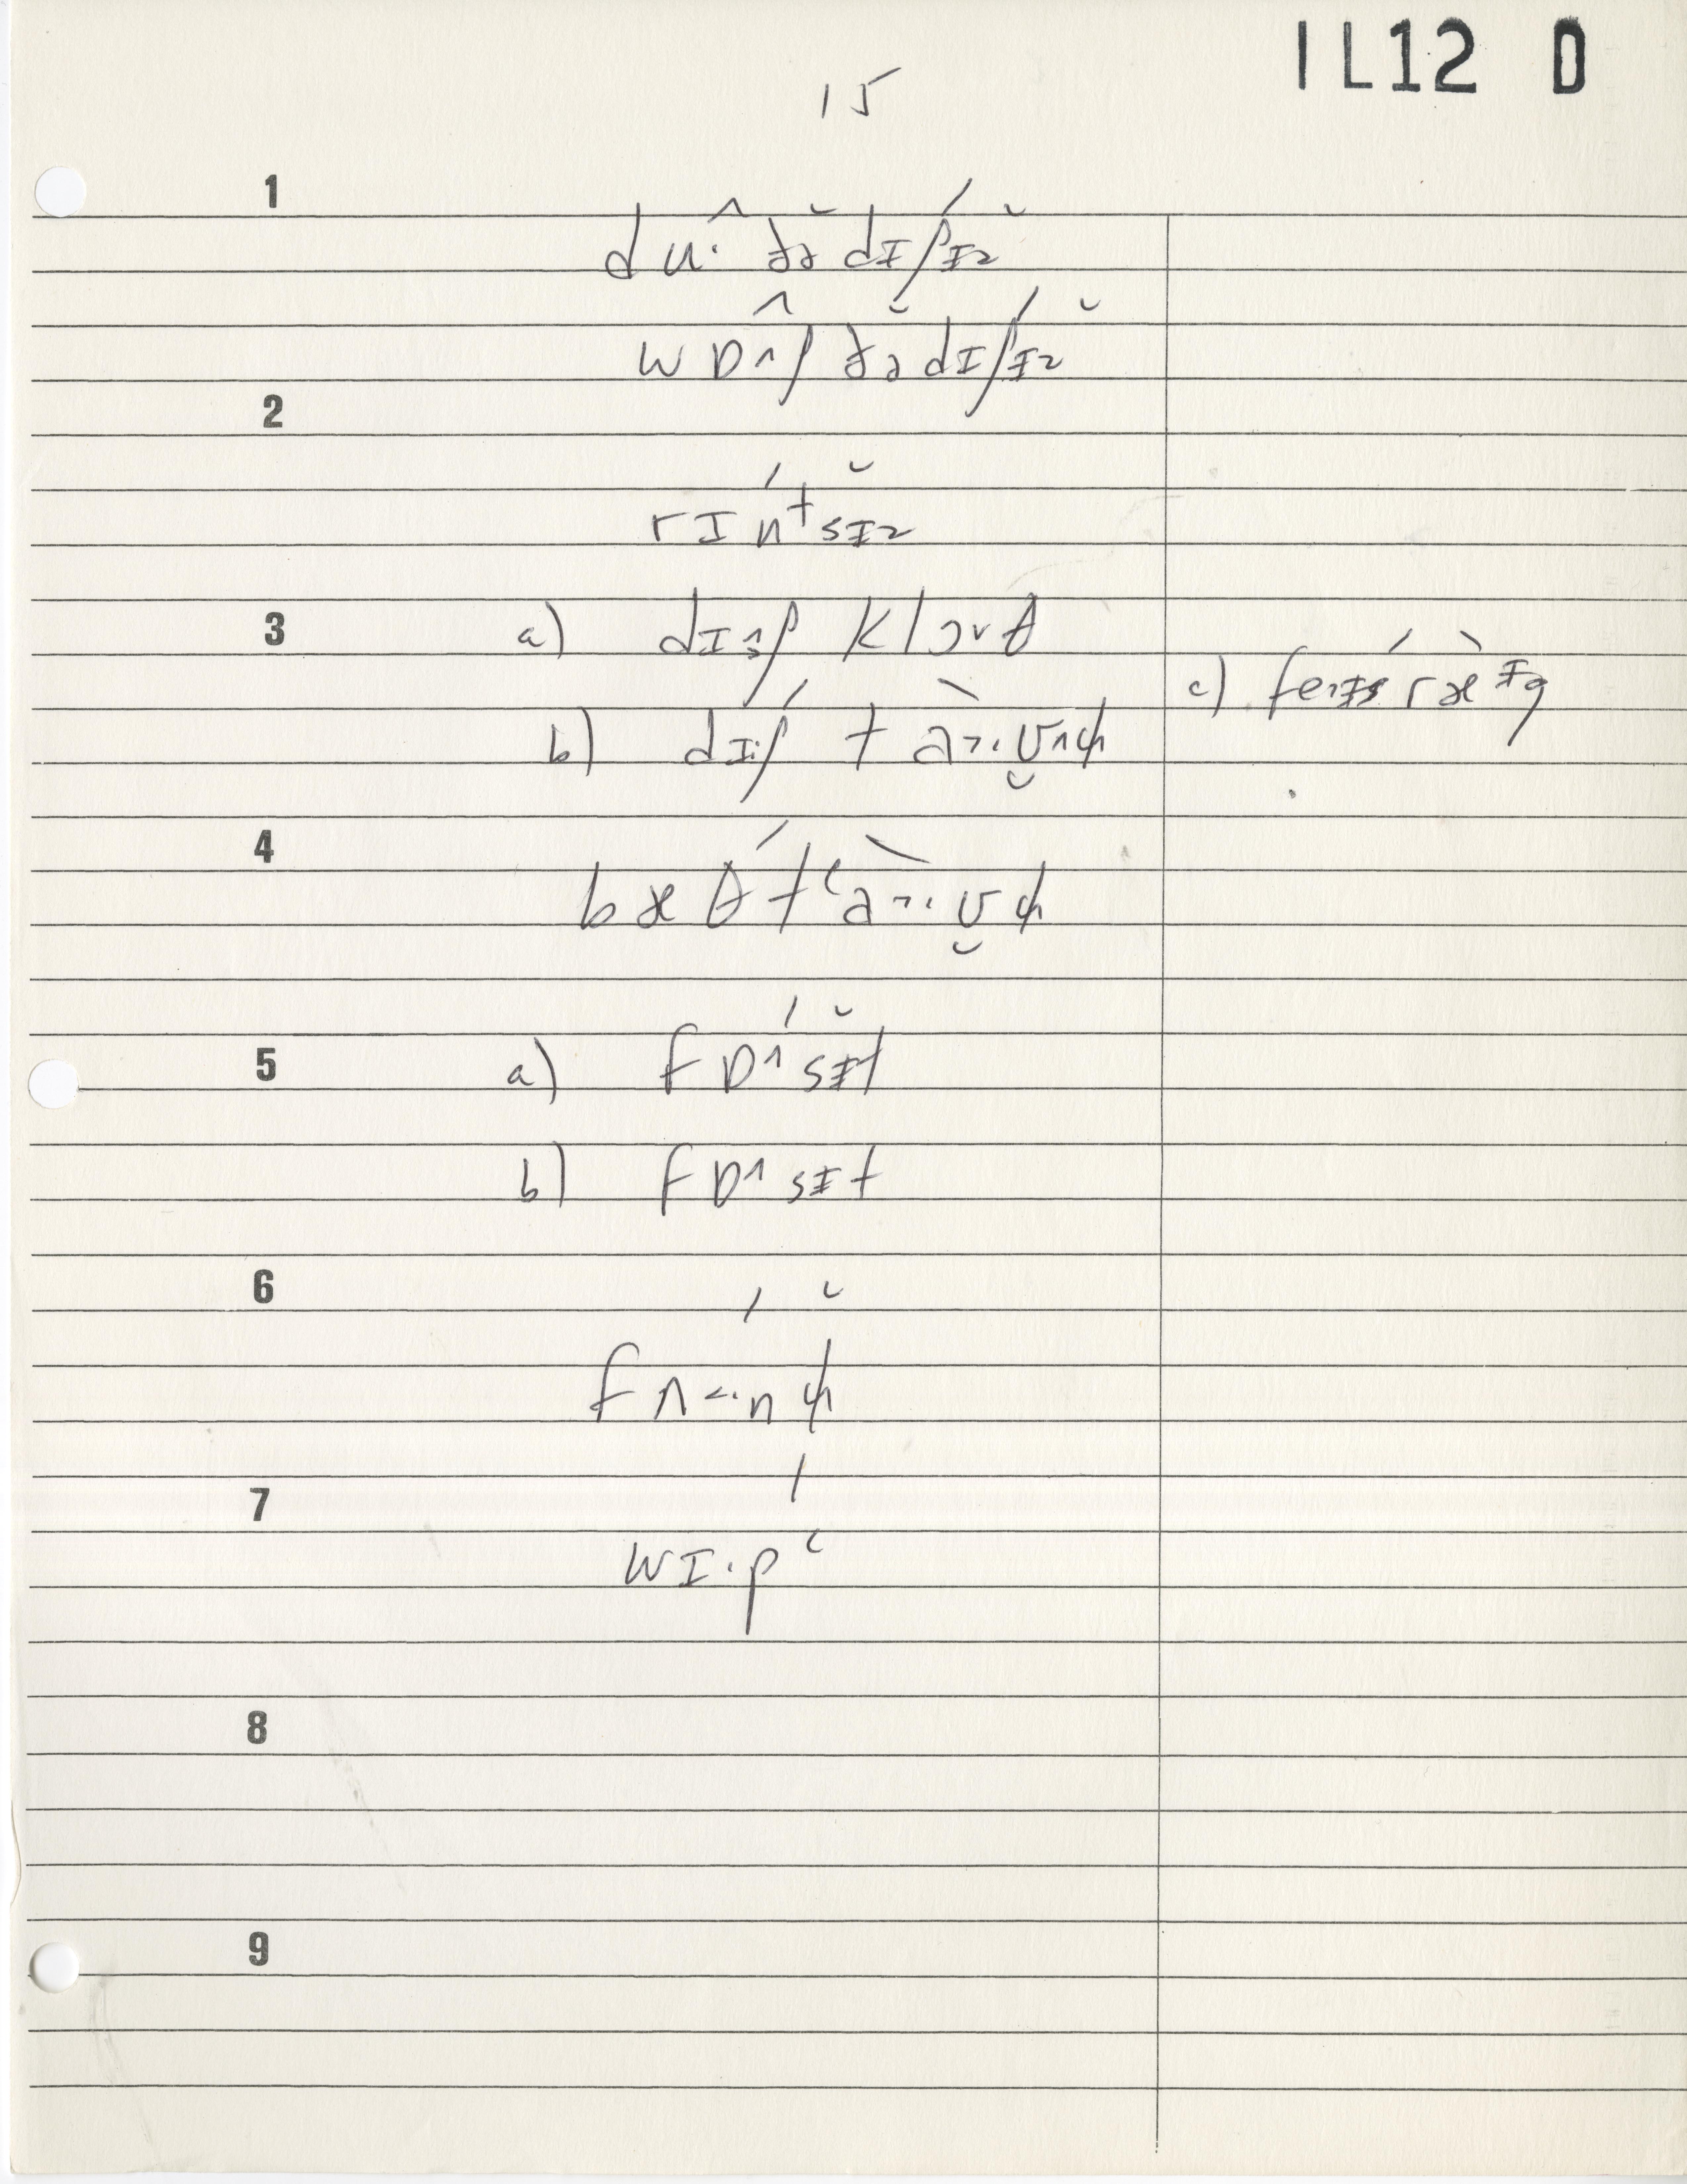 IL12 D
15
1
du· ðə dɪʃɪz
wɒ^ʃ ðə dɪʃɪz
2
rɪnᵗsɪz
3 a) dɪʃ klɔvθ
b) dɪ·ʃ taɜ·ʊ^ɫ
c) feɪs ræɪg
4
bæθ tʻaɜ·ʊɫ
5 a) fɒ^sɪt
b) fɒ^sɪt
6
fʌ<·nɫ
7
wɪ·pʻ
8
9